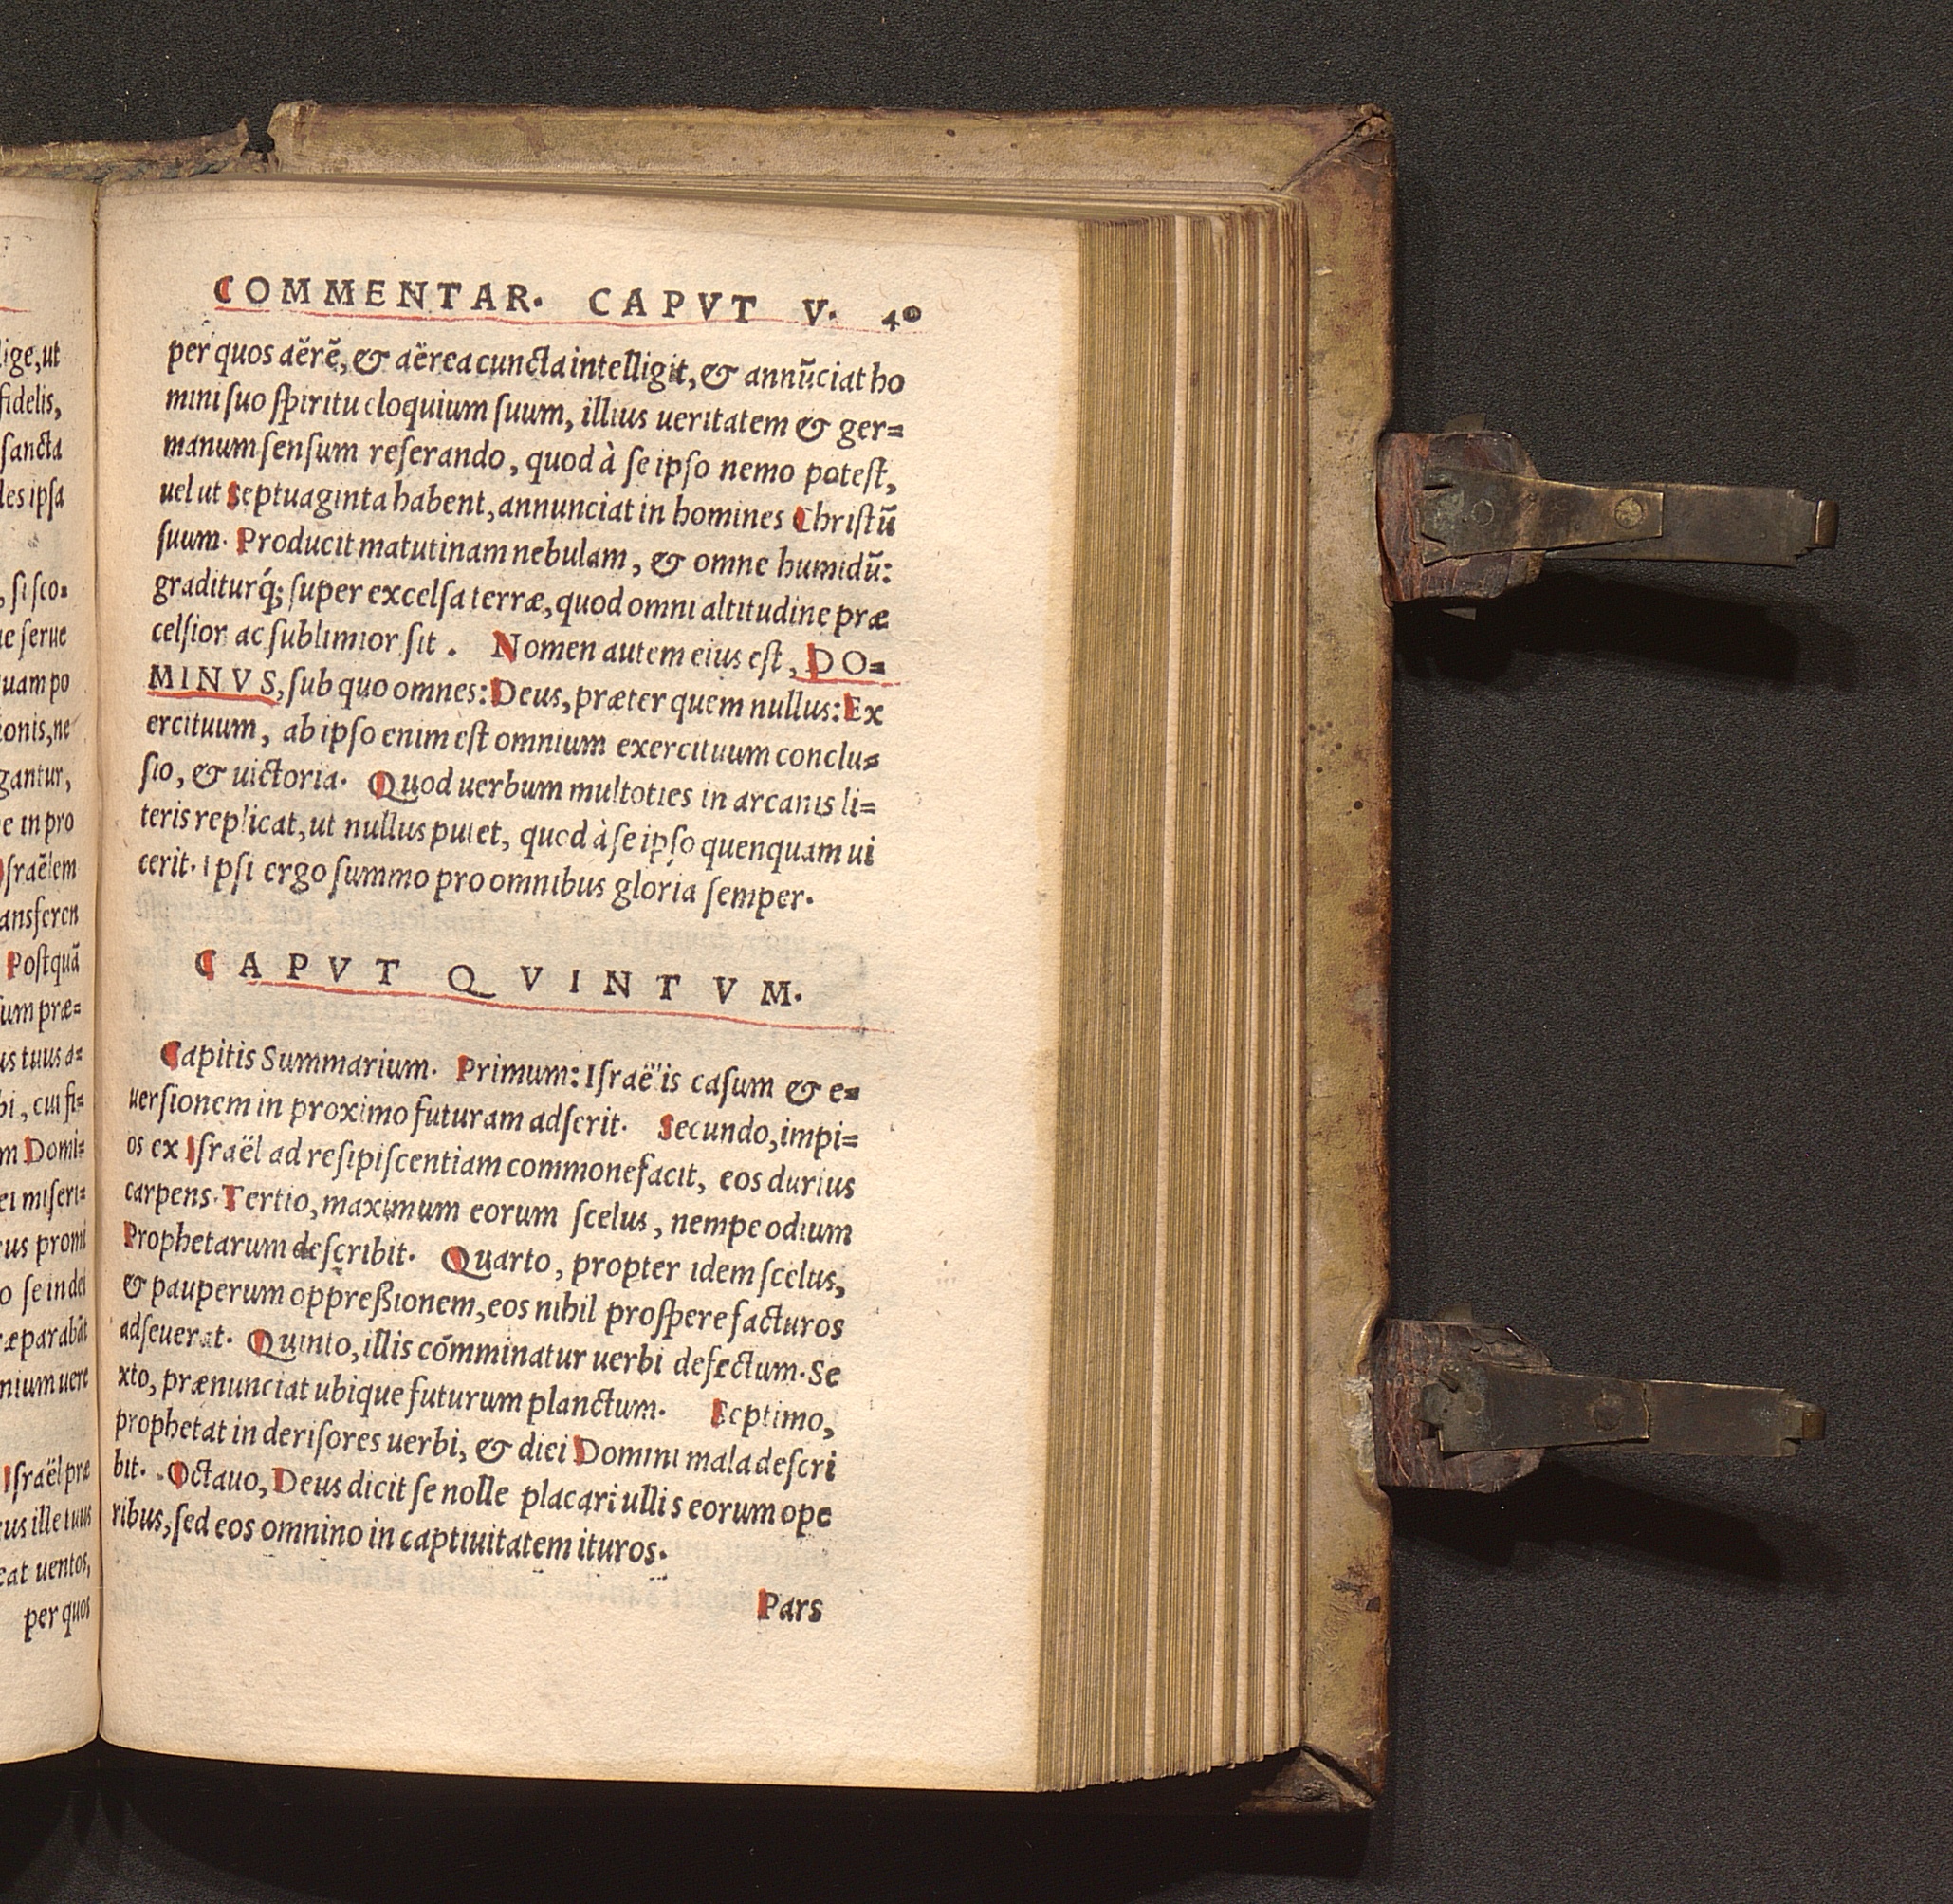 lige, ut
fidelis,
sancta
les ipsa
si sco-
ue serue
quam po
ionis, ne
gantur,
e in pro
Israëlem
ansferen
Postquā
sum præ-
us tuus a-
bi, cui fi-
m Domi-
ei miseri-
us promi
o se in dei
ræparabāt
nium uere
Israël præ
us ille tuus
eat uentos,
per quos
COMMENTAR. CAPVT V. 40
per quos aërē, & aërea cuncta intelligit, & annūciat ho
mini suo spiritu eloquium suum, illius ueritatem & ger-
manum sensum reserando, quod à se ipso nemo potest,
uel ut Septuaginta habent, annunciat in homines Christū
suum. Producit matutinam nebulam, & omne humidū:
graditurq́; super excelsa terræ, quod omni altitudine præ
celsior ac sublimior sit. Nomen autem eius est, DO-
MINVS, sub quo omnes: Deus, præter quem nullus: Ex
ercituum, ab ipso enim est omnium exercituum conclu-
sio, & uictoria. Quod uerbum multoties in arcanis li-
teris replicat, ut nullus putet, quod à se ipso quenquam ui
cerit. Ipsi ergo summo pro omnibus gloria semper.
CAPVT QVINTVM.
Capitis Summarium. Primum: Israëlis casum & e-
uersionem in proximo futuram adserit. Secundo, impi-
os ex Israël ad resipiscentiam commonefacit, eos durius
carpens. Tertio, maximum eorum scelus, nempe odium
Prophetarum describit. Quarto, propter idem scelus,
& pauperum oppreßionem, eos nihil prospere facturos
adseuerat. Quinto, illis cōmminatur uerbi defectum. Se
xto, prænunciat ubique futurum planctum. Septimo,
prophetat in derisores uerbi, & diei Domini mala descri
bit. Octauo, Deus dicit se nolle placari ullis eorum ope
ribus, sed eos omnino in captiuitatem ituros.
Pars